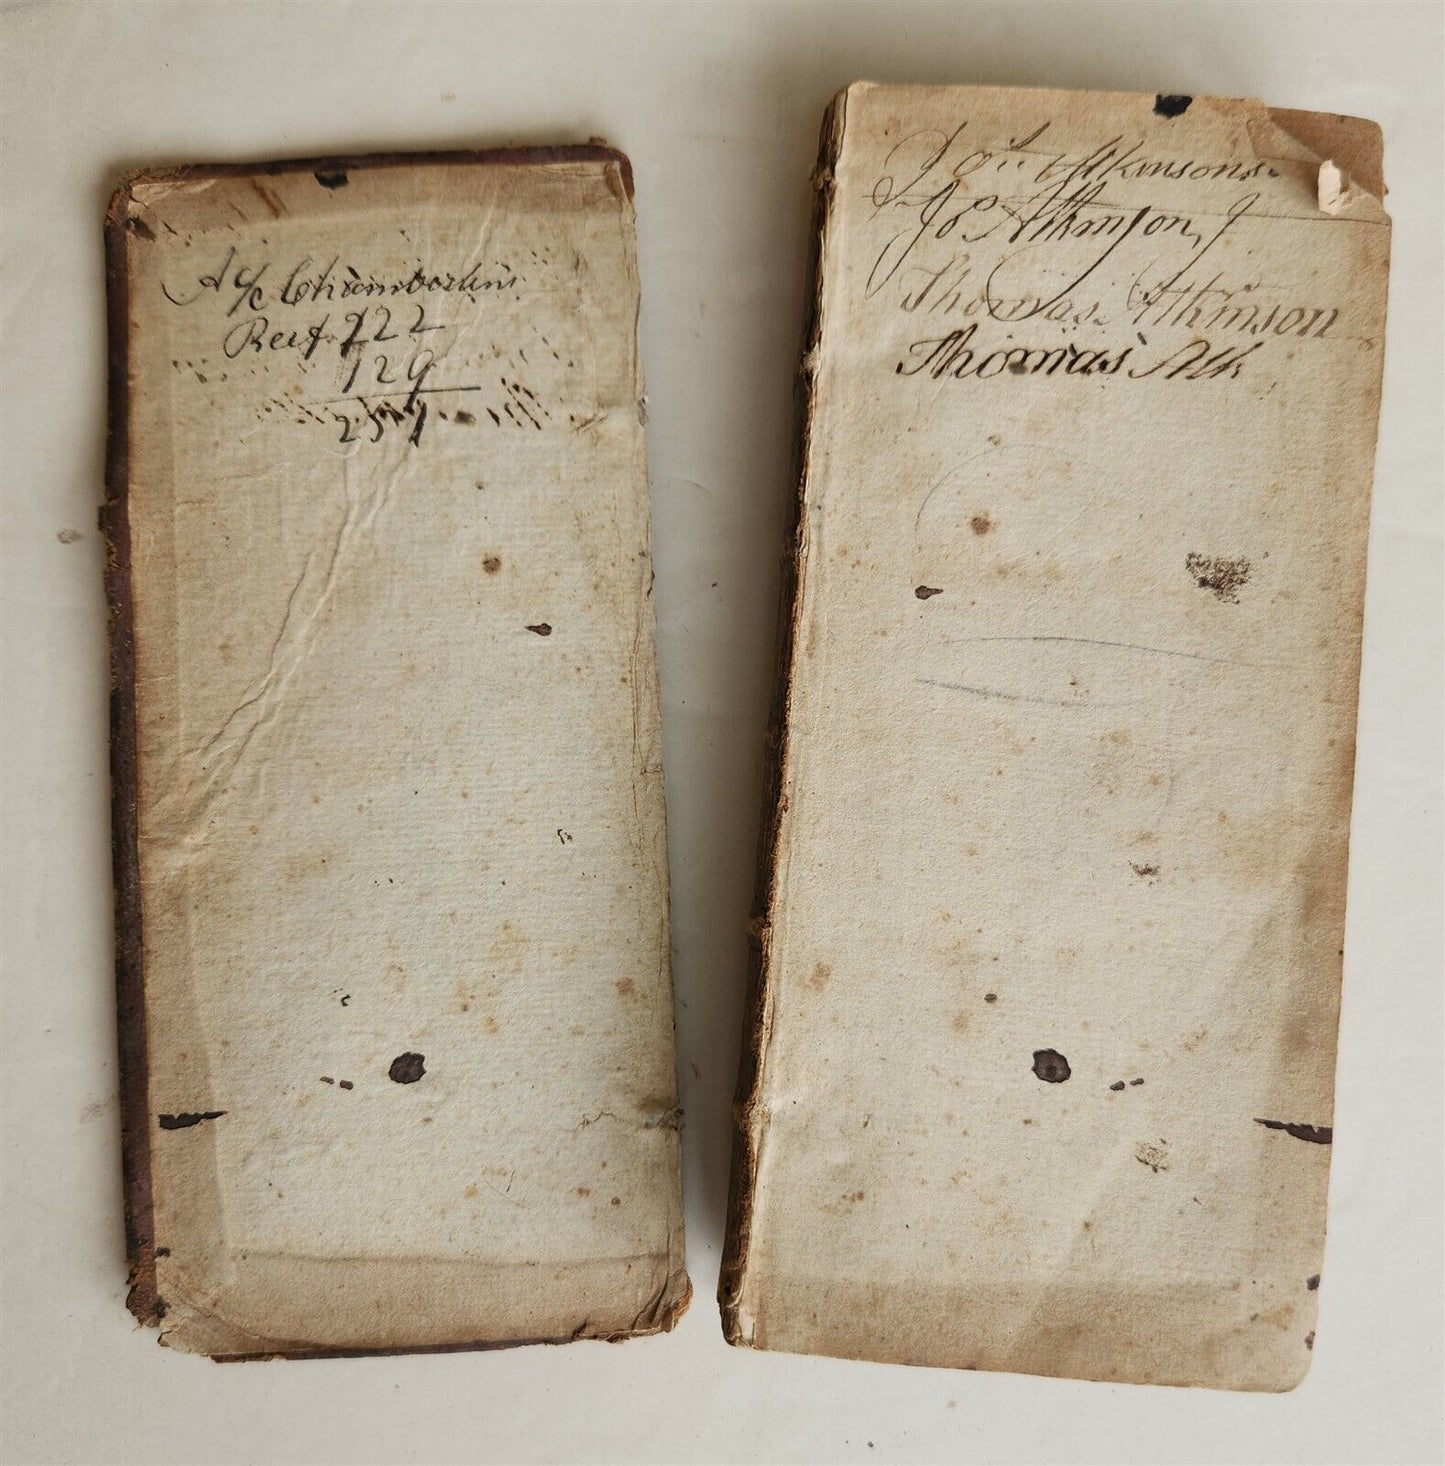 A/c Chamberlin
222
129
Jos. Atkinsons
Jos Atkinson J
Thomas Atkinson
Thomas Atk